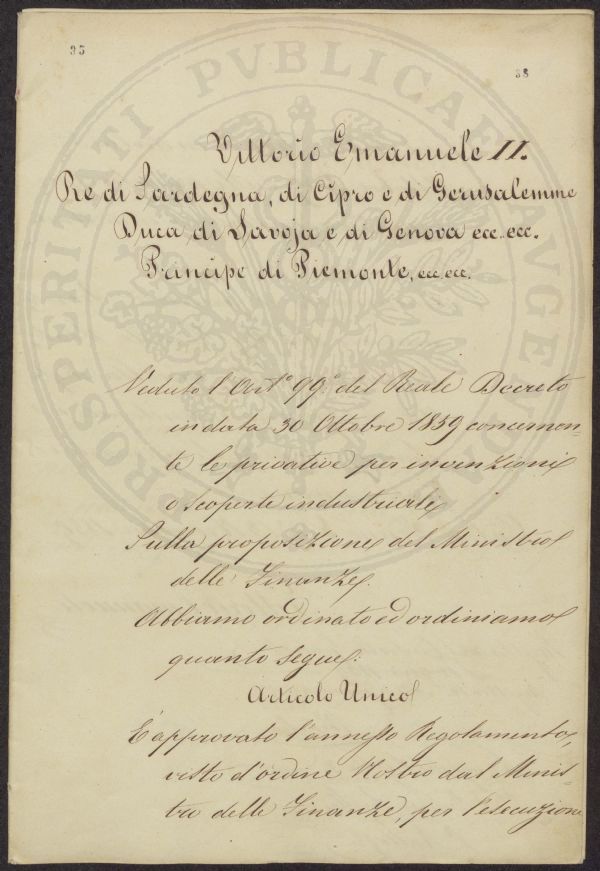 35
38
PROSPERITATI PVBLICAE AVGENDAE
Vittorio Emanuele II.
Re di Sardegna, di Cipro e di Gerusalemme
Duca di Savoja e di Genova ecc. ecc.
Principe di Piemonte, ecc. ecc.
Veduto l'Art.º 99.º del Reale Decreto
in data 30 Ottobre 1859 concernen-
te le privative per invenzioni
o scoperte industriali
Sulla proposizione del Ministro
delle Finanze.
Abbiamo ordinato ed ordiniamo
quanto segue:
Articolo Unico
È approvato l'annesso Regolamento,
visto d'ordine Nostro dal Minis-
tro delle Finanze, per l'esecuzione